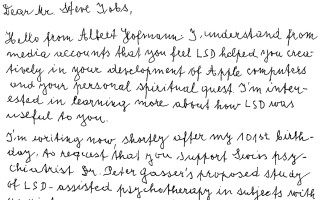 Dear Mr. Steve Jobs,
Hello from Albert Hofmann. I understand from
media accounts that you feel LSD helped you crea-
tively in your development of Apple computers
and your personal spiritual quest. I'm inter-
ested in learning more about how LSD was
useful to you.
I'm writing now, shortly after my 101st birth-
day, to request that you support Swiss psy-
chiatrist Dr. Peter Gasser's proposed study
of LSD-assisted psychotherapy in subjects with